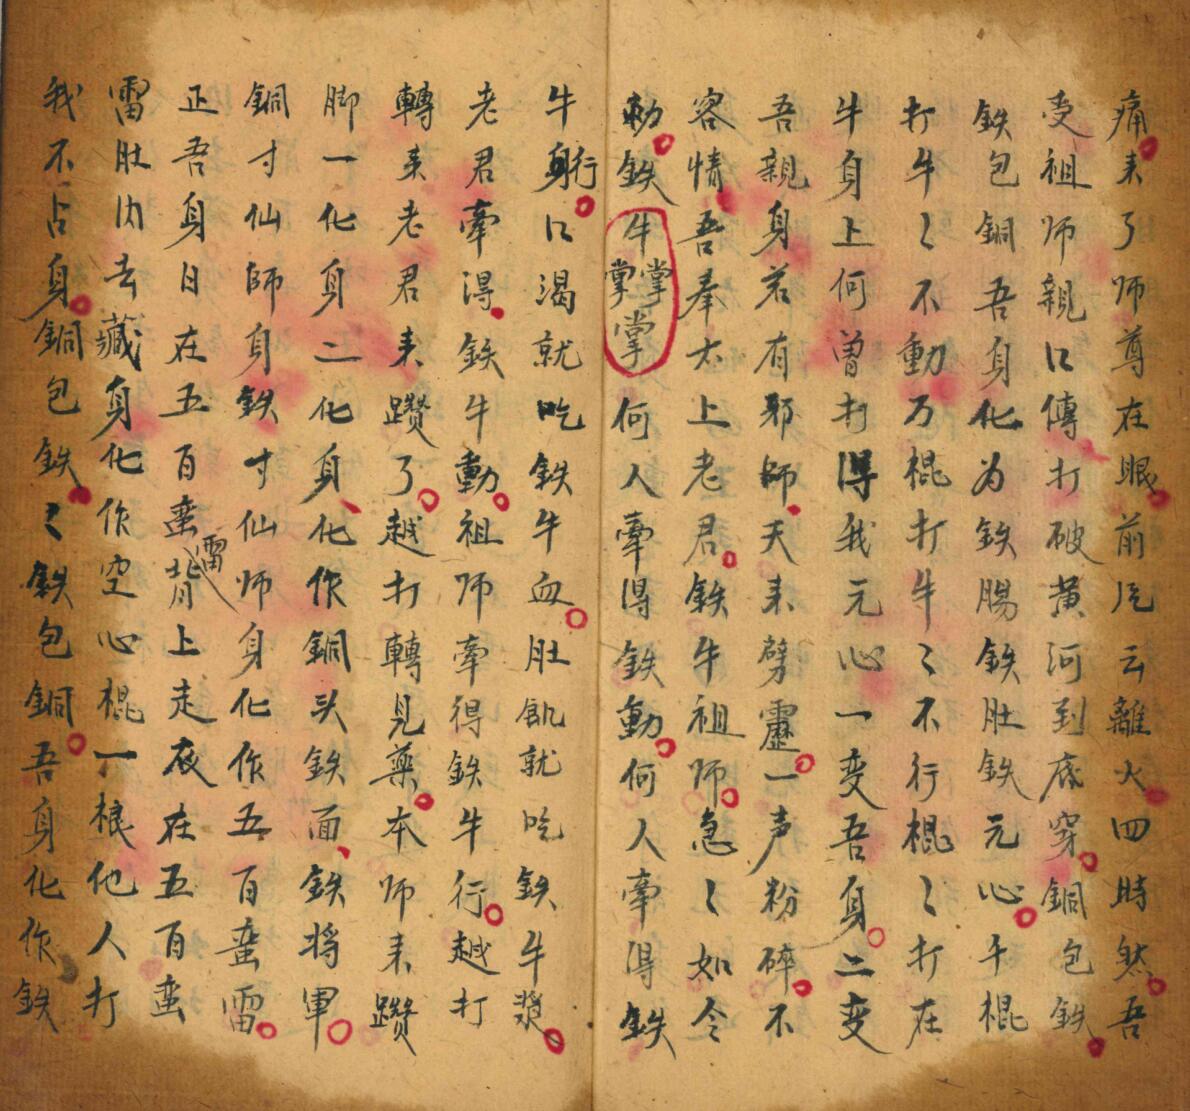 痛来了师尊在眼前凭云離火四時然吾
受祖师親口傳打破黄河到底穿銅包鉄
鉄包銅吾身化为鉄腸鉄肚鉄元心千棍
打牛〻不動万棍打牛〻不行棍〻打在
牛身上何曽打得我元心一变吾身二变
吾親身若有邪師天来劈靂一声粉碎不
容情吾奉太上老君鉄牛祖师急〻如令
勅鉄牛掌掌掌何人牽得鉄動何人牽得鉄
牛身行口渴就吃鉄牛血肚飢就吃鉄牛漿
老君牽得鉄牛動祖师牽得鉄牛行越打
轉来老君来躜了越打轉見藥本师来躜
脚一化身二化身化作銅头鉄面鉄将軍
銅寸仙師身鉄寸仙师身化作五百蛮雷
正吾身日在五百蛮雷背上走夜在五百蛮
雷肚内去藏身化作空心棍一根他人打
我不占身銅包鉄〻鉄包銅吾身化作鉄